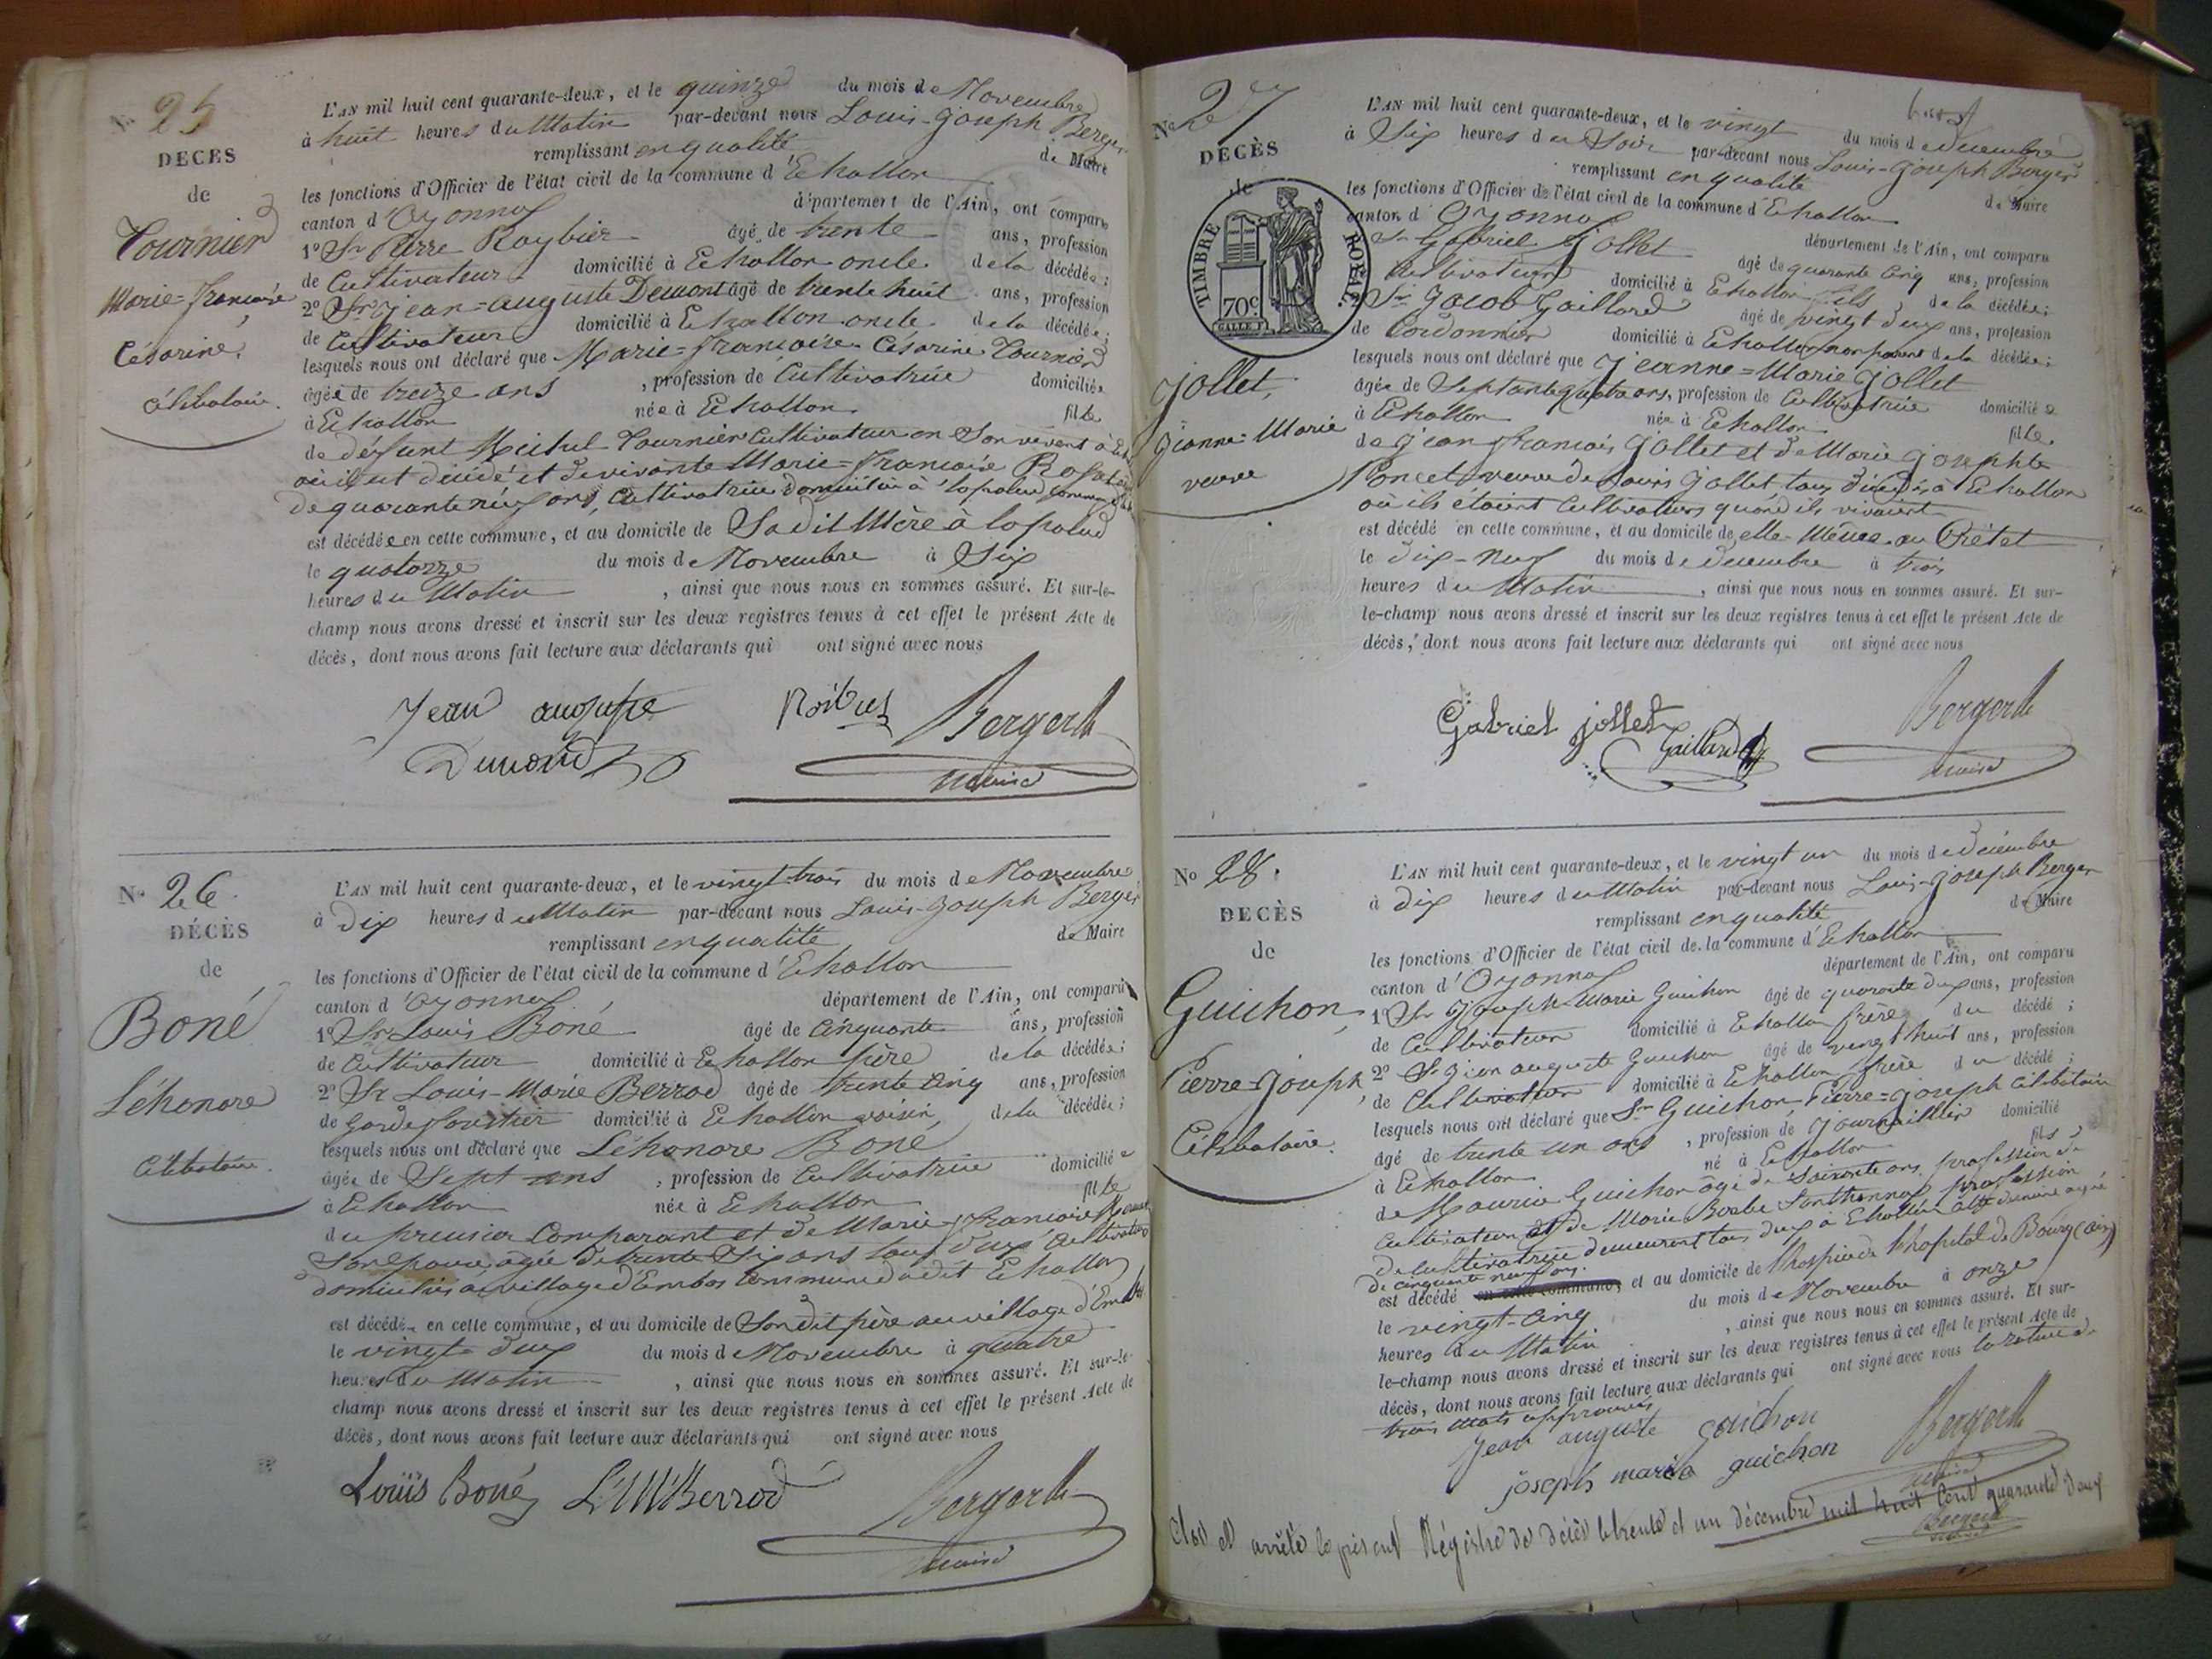 N° 25
DÉCÈS
de
Tournier
Marie=françoise
Césarine,
célibataire.
L'AN mil huit cent quarante-deux, et le quinze du mois de Novembre
à huit heures du Matin par-devant nous Louis-Joseph Berger
remplissant en qualité de Maire
les fonctions d'Officier de l'état civil de la commune d'Echallon
canton d'Oyonnax département de l'Ain, ont comparu
1° Sr Pierre âgé de trente ans, profession
de Cultivateur domicilié à Echallon oncle de la décédée;
2° Sr Jean=auguste Dumont âgé de trente huit ans, profession
de Cultivateur domicilié à Echallon oncle de la décédée;
lesquels nous ont déclaré que Marie=françoise Césarine Tournier
âgée de treize ans, profession de Cultivatrice domiciliée
à Echallon née à Echallon fille
de défunt Michel Tournier Cultivateur en Son vivant à
où il est décédé et de vivante Marie=françoise
de quarante neuf ans, Cultivatrice domiciliée à lapalud
est décédée en cette commune, et au domicile de Sa dit Mère à lapalud
le quatorze du mois de Novembre à Six
heures du Matin, ainsi que nous nous en sommes assuré. Et sur-le-
champ nous avons dressé et inscrit sur les deux registres tenus à cet effet le présent Acte de
décès, dont nous avons fait lecture aux déclarants qui ont signé avec nous
Jean auguste
Dumond
Berger
maire
N° 26.
DÉCÈS
de
Boné
Léhonore
célibataire.
L'AN mil huit cent quarante-deux, et le vingt-trois du mois de Novembre
à Dix heures du Matin par-devant nous Louis-Joseph Berger
remplissant en qualité de Maire
les fonctions d'Officier de l'état civil de la commune d'Echallon
canton d'Oyonnax département de l'Ain, ont comparu
1° Sr Louis Boné âgé de Cinquante ans, profession
de Cultivateur domicilié à Echallon père de la décédée;
2° Sr Louis-Marie Berrod âgé de trente Cinq ans, profession
de Garde forestier domicilié à Echallon voisin, de la décédée;
lesquels nous ont déclaré que Léhonore Boné
âgée de Sept ans, profession de Cultivatrice domiciliée
à Echallon née à Echallon fille
du premier Comparant et de Marie=françoise
Son épouse agée de trente Six ans tous deux Cultivateurs
domiciliés au village d'Embos Commune du dit Echallon
est décédée en cette commune, et au domicile de Son dit père au village d'
le vingt deux du mois de Novembre à quatre
heures du Matin, ainsi que nous nous en sommes assuré. Et sur-le-
champ nous avons dressé et inscrit sur les deux registres tenus à cet effet le présent Acte de
décès, dont nous avons fait lecture aux déclarants qui ont signé avec nous
Louis Boné L M Berrod
Berger
maire
N° 27
DÉCÈS
de
TIMBRE ROYAL.
70c
Jollet,
Jeanne=Marie
veuve
L'AN mil huit cent quarante-deux, et le vingt du mois de décembre
à Six heures du Soir par-devant nous Louis-Joseph Berger
remplissant en qualité de Maire
les fonctions d'Officier de l'état civil de la commune d'Echallon
canton d'Oyonnax département de l'Ain, ont comparu
Sr Gabriel Jollet âgé de quarante Cinq ans, profession
Cultivateur domicilié à Echallon fils, de la décédée;
Sr Jacob Gaillard âgé de vingt deux ans, profession
de Cordonnier domicilié à Echallon non parent de la décédée;
lesquels nous ont déclaré que Jeanne=Marie Jollet
âgée de Septante quatre ans, profession de Cultivatrice domiciliée
à Echallon née à Echallon fille
de Jean françois Jollet et de Marie Josephte
Poncet, veuve de Louis Jollet tous décédés à Echallon
où ils étaient Cultivateurs quand ils vivaient
est décédé en cette commune, et au domicile de elle-Même au Crétet
le dix-neuf du mois de décembre à trois
heures du Matin, ainsi que nous nous en sommes assuré. Et sur-
le-champ nous avons dressé et inscrit sur les deux registres tenus à cet effet le présent Acte de
décès, dont nous avons fait lecture aux déclarants qui ont signé avec nous
Gabriel jollet
Gaillard
Berger
maire
N° 28.
DÉCÈS
de
Guichon,
Pierre-Joseph,
Célibataire.
L'AN mil huit cent quarante-deux, et le vingt un du mois de décembre
à dix heures du Matin par-devant nous Louis-Joseph Berger
remplissant en qualité de Maire
les fonctions d'Officier de l'état civil de la commune d'Echallon
canton d'Oyonnax département de l'Ain, ont comparu
1° Sr Joseph-Marie Guichon âgé de quarante deux ans, profession
de Cultivateur domicilié à Echallon frère du décédé;
2° Sr Jean auguste Guichon âgé de vingt huit ans, profession
de Cultivateur domicilié à Echallon frère du décédé;
lesquels nous ont déclaré que Sr Guichon, Pierre=Joseph Célibataire
âgé de trente un ans, profession de Journaillier domicilié
à Echallon né à Echallon fils
de Maurice Guichon âgé de Soixante ans, profession de
Cultivateur et de Marie Barbe Sonthonnax profession
de Cultivatrice demeurant tous deux à Echallon cette derniere agée
de cinquante neuf ans.
est décédé en cette commune, et au domicile de l'hospice de l'hôpital de Bourg (ain)
le vingt-Cinq du mois de Novembre à onze
heures du Matin, ainsi que nous nous en sommes assuré. Et sur-
le-champ nous avons dressé et inscrit sur les deux registres tenus à cet effet le présent Acte de
décès, dont nous avons fait lecture aux déclarants qui ont signé avec nous la rature de
trois mots approuvés
Jean auguste Guichon
joseph marie guichon
Berger
maire
Clos et arrêté le présent Régistre de décès le trente et un décembre mil huit cent quarante deux
Berger
maire